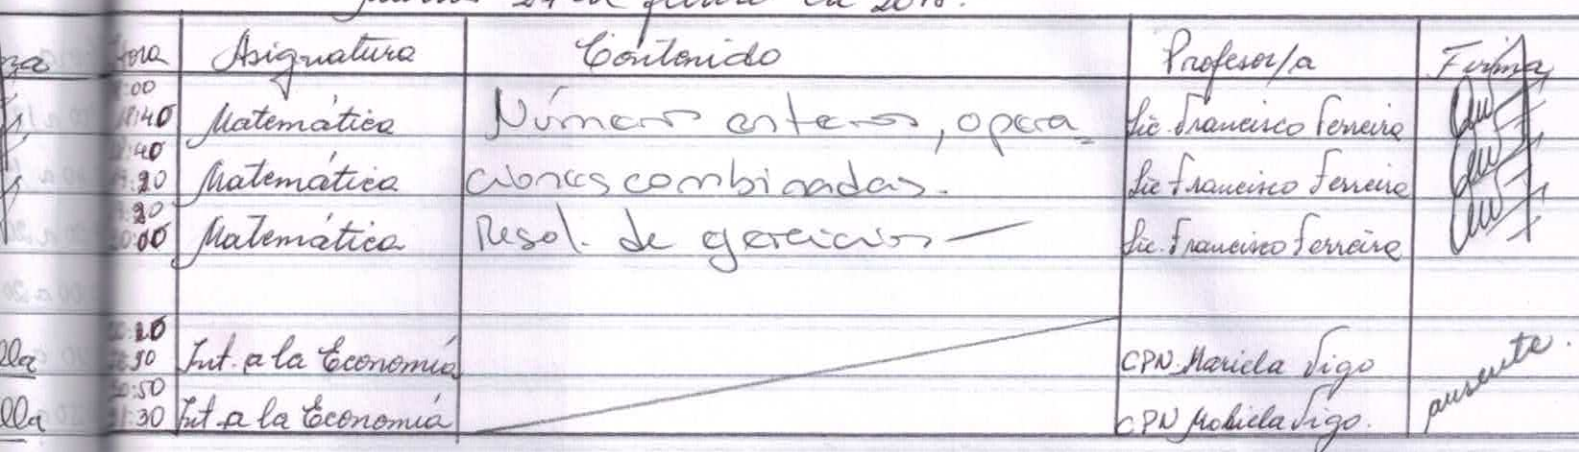 de 2018.
Hora Asignatura Contenido Profesor/a Firma
:00
18:40 Matemática Números enteros, opera_ Lic. Francisco Ferreira
:40
:20 Matemática ciones combinadas. Lic Francisco Ferreira
:20
:00 Matemática Resol. de ejercicios Lic. Francisco Ferreira
:10
:50 Int. a la Economía CPN. Mariela Vigo ausente.
:50
:30 Int. a la Economía CPN Mariela Vigo.